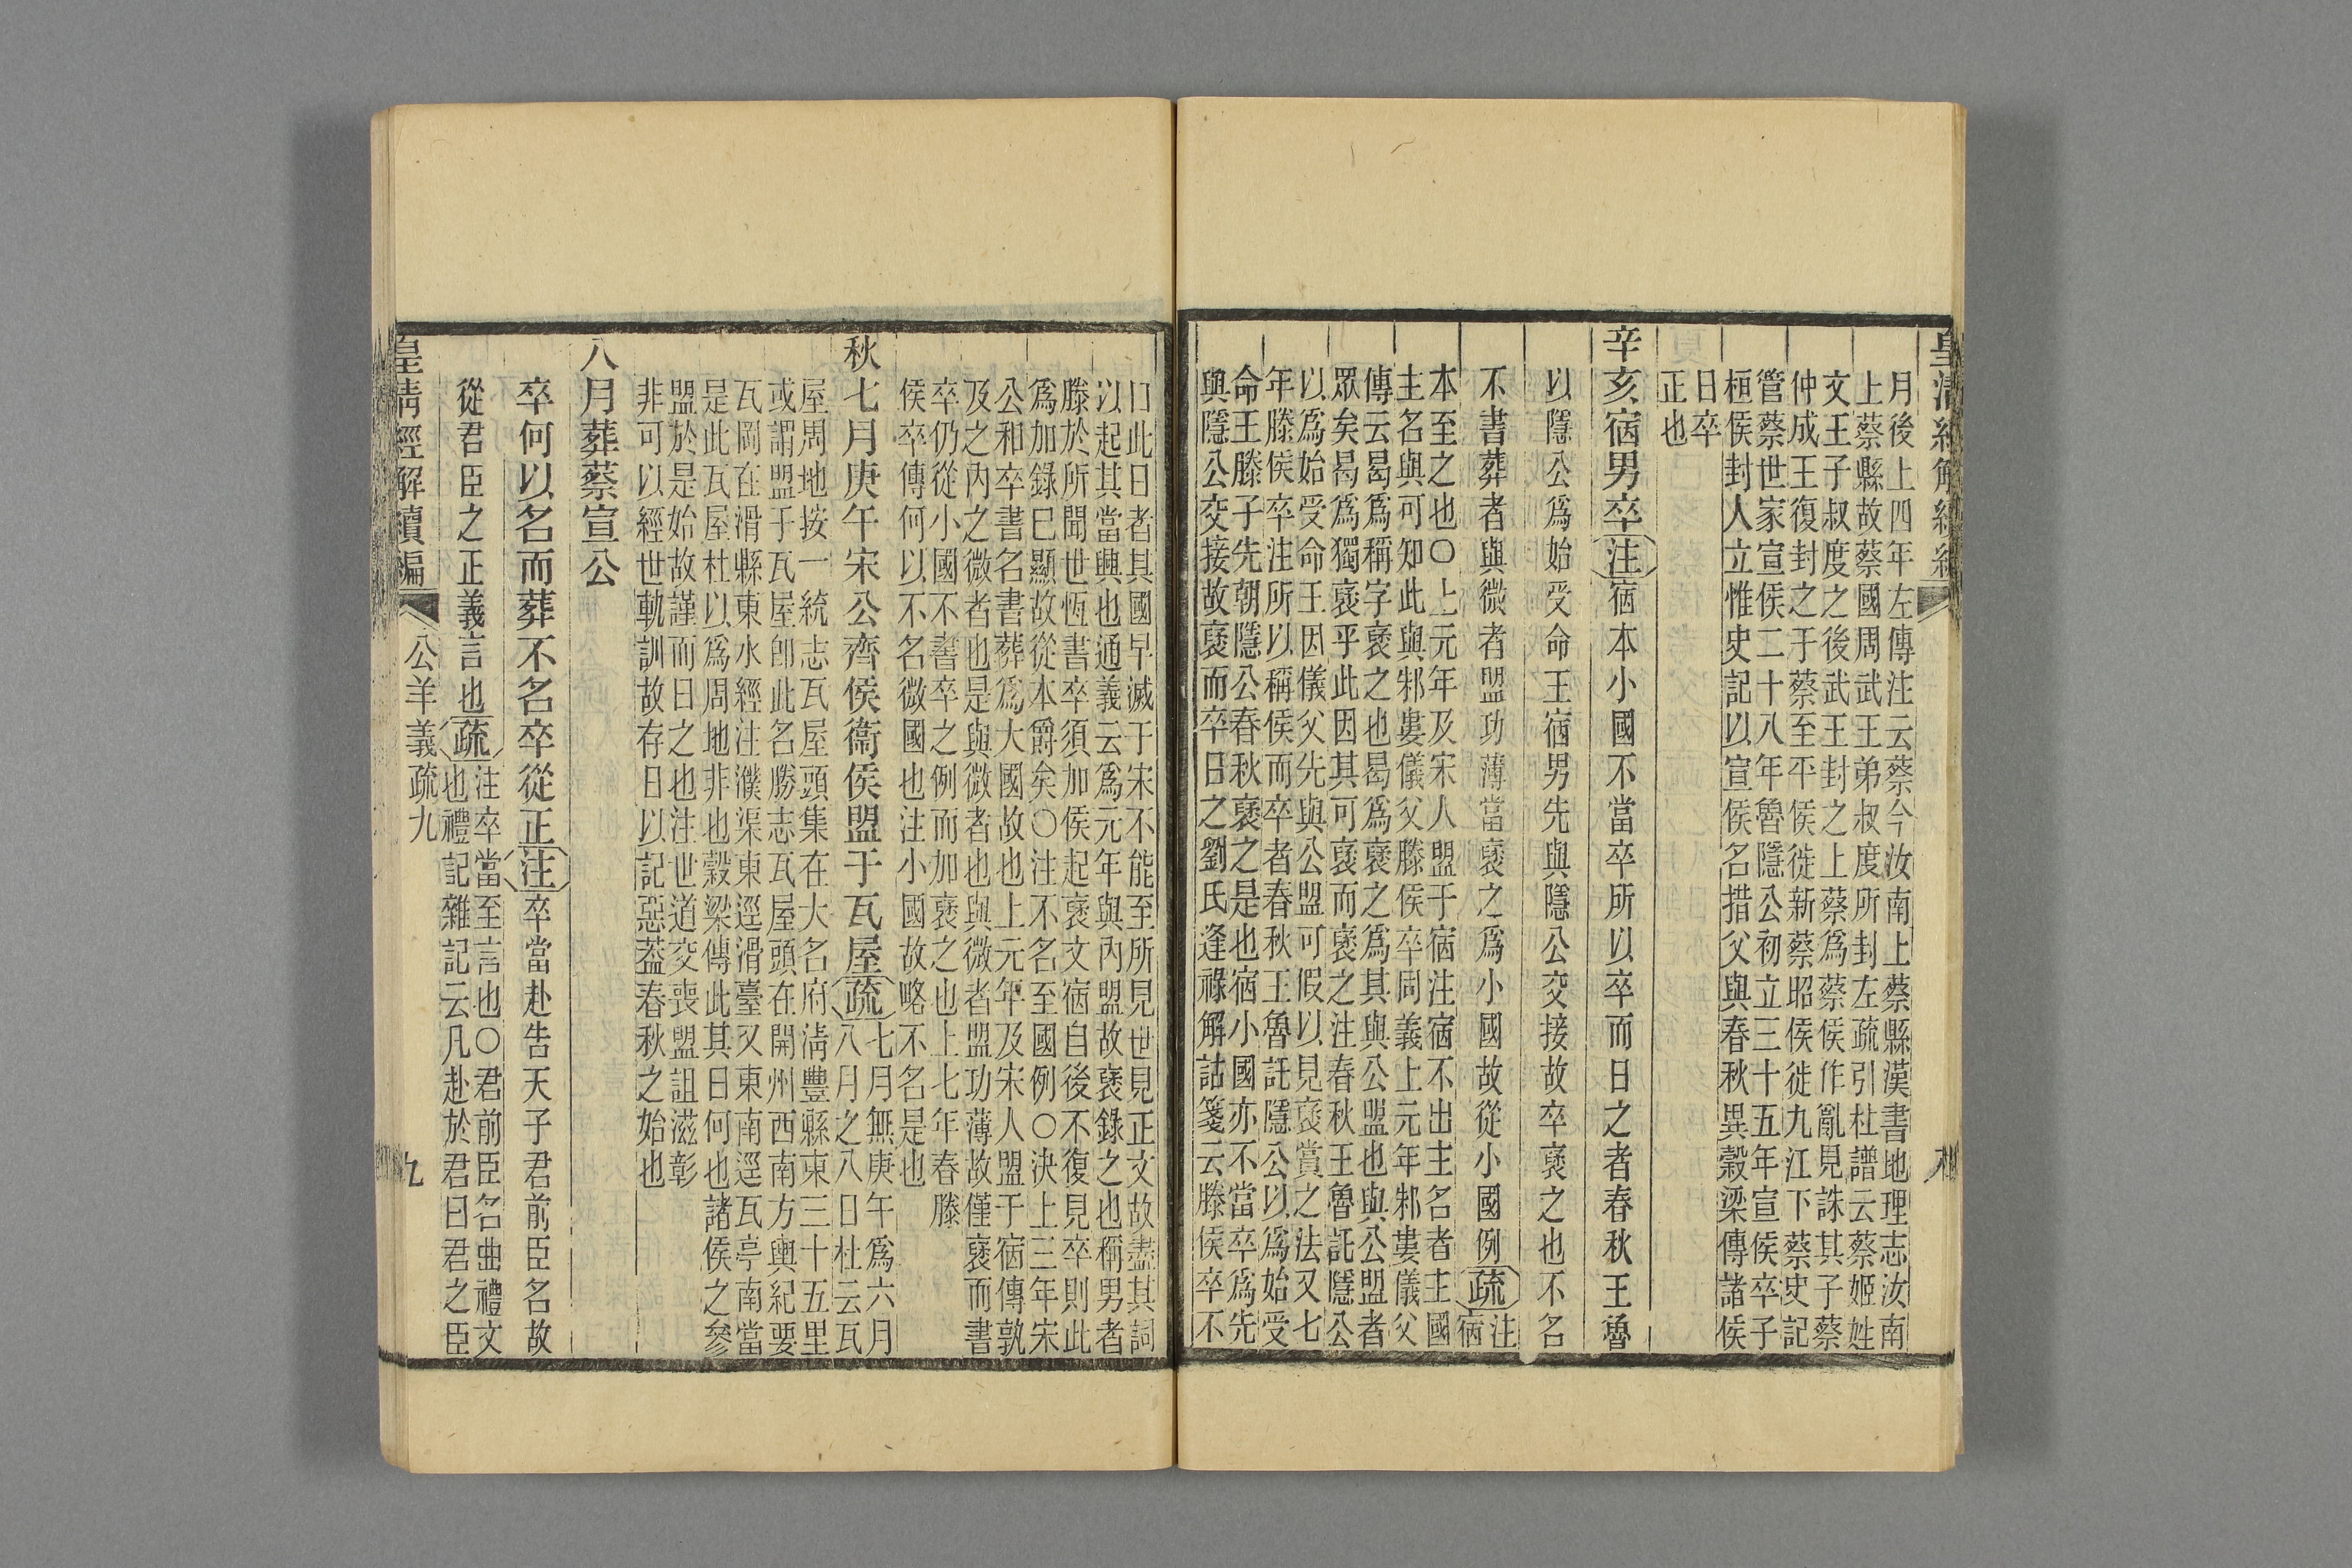 皇清經解續編
月後上四年左傳注云蔡今汝南上蔡縣漢書地理志汝南
上蔡縣故蔡國周武王弟叔度所封左疏引杜譜云蔡姬姓
文王子叔度之後武王封之上蔡爲蔡侯作亂見誅其子蔡
仲成王復封之于蔡至平侯徙新蔡昭侯徙九江下蔡史記
管蔡世家宣侯二十八年魯隱公初立三十五年宣侯卒子
桓侯封人立惟史記以宣侯名措父與春秋異穀梁傳諸侯
日卒
正也
辛亥宿男卒注宿本小國不當卒所以卒而日之者春秋王魯
以隱公爲始受命王宿男先與隱公交接故卒褒之也不名
不書葬者與微者盟功薄當褒之爲小國故從小國例疏注
宿
本至之也〇上元年及宋人盟于宿注宿不出主名者主國
主名與可知此與邾婁儀父滕侯卒同義上元年邾婁儀父
傳云曷爲稱字褒之也曷爲褒之爲其與公盟也與公盟者
眾矣曷爲獨褒乎此因其可褒而褒之注春秋王魯託隱公
以爲始受命王因儀父先與公盟可假以見褒賞之法又七
年滕侯卒注所以稱侯而卒者春秋王魯託隱公以爲始受
命王滕子先朝隱公春秋褒之是也宿小國亦不當卒爲先
與隱公交接故褒而卒日之劉氏逢祿解詁箋云滕侯卒不
日此日者其國早滅于宋不能至所見世見正文故盡其詞
以起其當興也通義云爲元年與內盟故褒錄之也稱男者
滕於所聞世恆書卒須加侯起褒文宿自後不復見卒則此
爲加錄已顯故從本爵矣〇注不名至國例〇決上三年宋
公和卒書名書葬爲大國故也上元年及宋人盟于宿傳孰
及之內之微者也是與微者也與微者盟功薄故僅褒而書
卒仍從小國不書卒之例而加褒之也上七年春滕
侯卒傳何以不名微國也注小國故略不名是也
秋七月庚午宋公齊侯衞侯盟于瓦屋疏七月無庚午爲六月
八月之八日杜云瓦
屋周地按一統志瓦屋頭集在大名府清豐縣東三十五里
或謂盟于瓦屋卽此名勝志瓦屋頭在開州西南方輿紀要
瓦岡在滑縣東水經注濮渠東逕滑臺又東南逕瓦亭南當
是此瓦屋杜以爲周地非也穀梁傳此其日何也諸侯之參
盟於是始故謹而日之也注世道交喪盟詛滋彰
非可以經世軌訓故存日以記惡蓋春秋之始也
八月葬蔡宣公
卒何以名而葬不名卒從正注卒當赴告天子君前臣名故
從君臣之正義言也疏注卒當至言也〇君前臣名曲禮文
也禮記雜記云凡赴於君曰君之臣
皇清經解續編 公羊義疏九 九